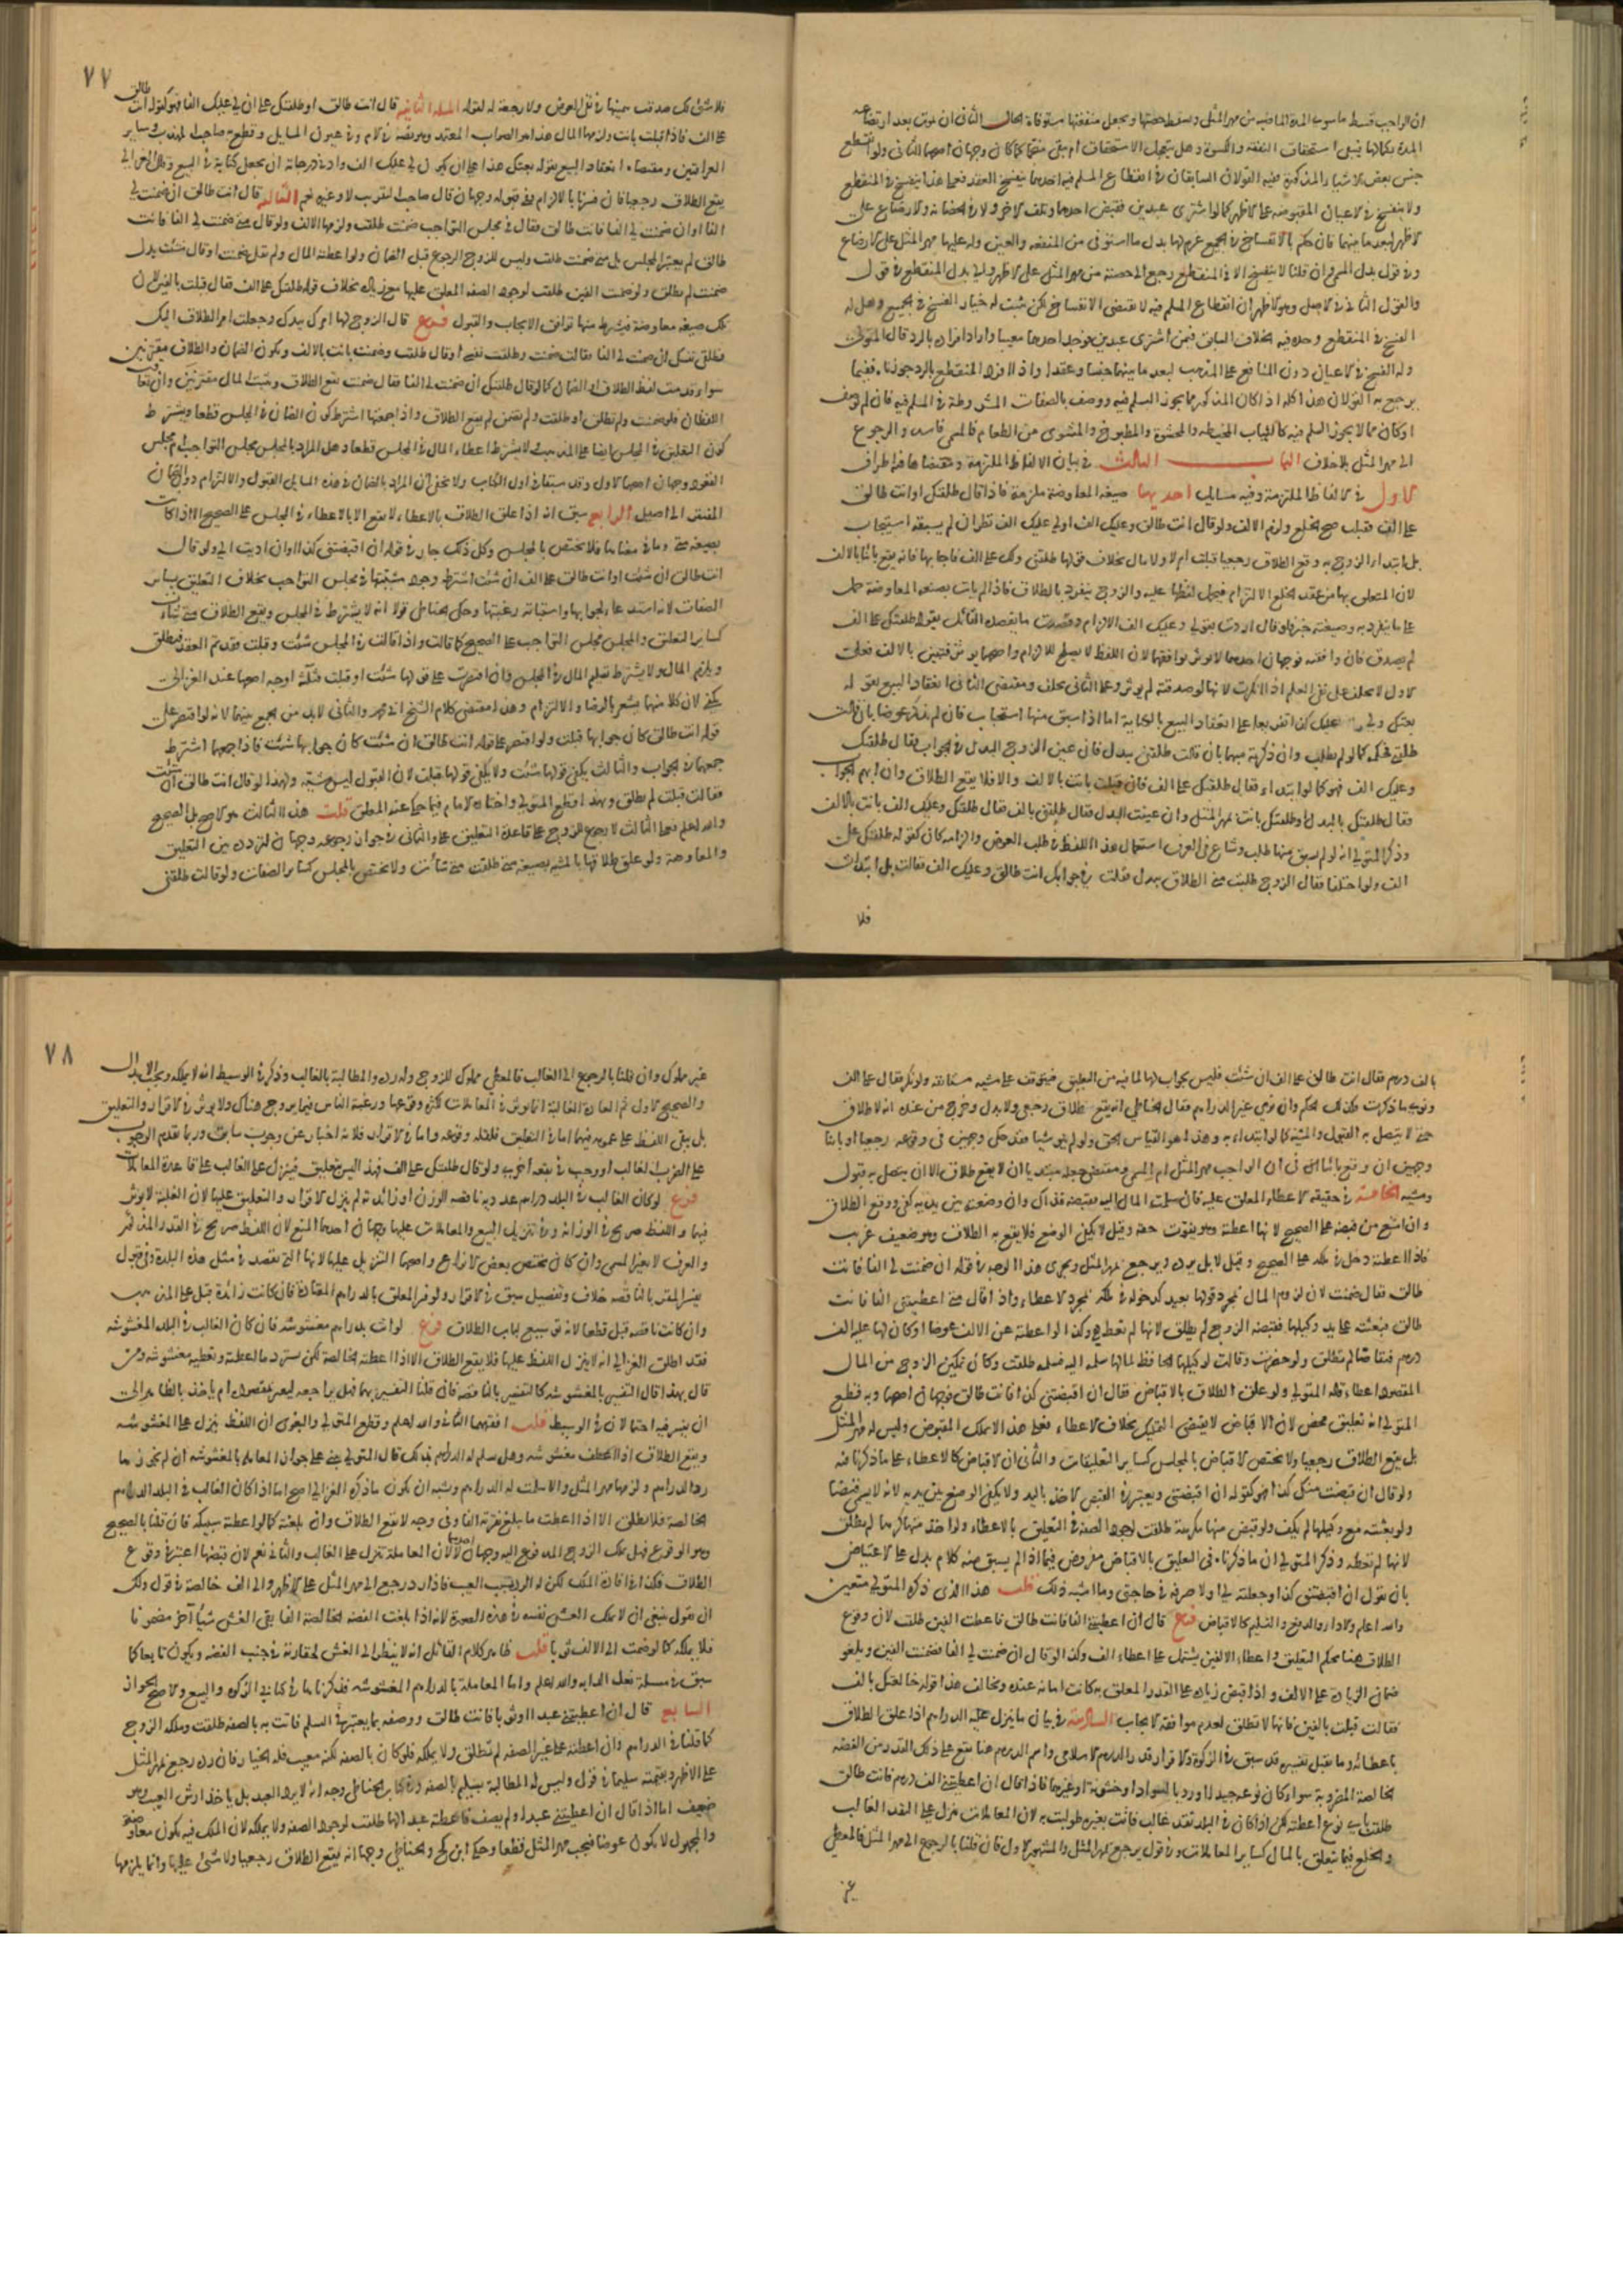 ان الواجب قسط ما سوى المدة الماضية من مهر المثل ويسقط حصتها ويجعل منفعتها مستوفاة الحال الثاني ان يموت بعد ارتضاعه
المدة بكمالها فيبقى استحقاق النفقة والكسوة وهل يتعجل الاستحقاق ام يبقى منجما كما كان وجهان اصحهما الثاني ولو انقطع
جنس بعض الاشياء المذكورة ففيه القولان السابقان في انقطاع المسلم فيه احدهما ينفسخ العقد فعلى هذا ينفسخ في المنقطع
ولا ينفسخ في الاعيان المقبوضة على الاظهر كما لو اشترى عبدين فقبض احدهما وتلف الاخر ولا في الحضانة والارضاع على
الاظهر لبعد ما بينهما فان حكم بالانفساخ في الجميع غرم لها بدل ما استوفى من المنفعة والعين وله عليها مهر المثل على الارضاع
وفي قول بدل المسمى وان قلنا لا ينفسخ الا في المنقطع رجع الى حصته من مهر المثل على الاظهر والى بدل المنقطع في قول
والقول الثاني في الاصل وهو الاظهر ان انقطاع المسلم فيه لا يقتضي الانفساخ لكن يثبت له خيار الفسخ في الجميع وهل له
الفسخ في المنقطع وحده فيه الخلاف السابق فيمن اشترى عبدين فوجد احدهما معيبا واراد افراده بالرد قال المتولي
وله الفسخ في الاعيان دون المنافع على المذهب لبعد ما بينهما جنسا وعقدا واذا افرد المنقطع بالرد جوزناه ففيما
يرجع به القولان هذا كله اذا كان المذكور مما يجوز السلم فيه ووصف بالصفات المشروطة في المسلم فيه فان لم يوصف
او كان مما لا يجوز السلم فيه كالثياب المخيطة والمحشوة والمطبوخ والمشوي من الطعام فالمسمى فاسد والرجوع
الى مهر المثل بلا خلاف الباب الثالث في بيان الالفاظ الملزمة ومقتضاها فيه اطراف
الاول في الالفاظ الملزمة وفيه مسايل احديها صيغة المعاوضة ملزمة فاذا قال طلقتك او انت طالق
على الف فقبلت صح الخلع ولزم الالف ولو قال انت طالق وعليك الف او لي عليك الف نظر ان لم يسبقه استيجاب
بل ابتدا الزوج به وقع الطلاق رجعيا قبلت ام لا ولا مال بخلاف قولها طلقني ولك علي الف فاجابها فانه يقع باينا بالالف
لان المتعلق بها من عقد الخلع الالتزام فيحمل لفظها عليه والزوج ينفرد بالطلاق فاذا لم يات بصيغة المعاوضة حمل
على ما ينفرد به وصيغته خبر ولو قال اردت بقولي وعليك الف الالزام وقصدت ما يقصده القائل بقوله طلقتك على الف
لم يصدق فان وافقته فوجهان احدهما لا يوثر توافقهما لان اللفظ لا يصلح للالزام واصحهما يوثر فتبين بالالف فعلى
الاول لا يحلف على نفي العلم اذا انكرت لانها لو صدقته لم يوثر وعلى الثاني يحلف ومقتضى الثاني انعقاد البيع بقوله
بعتك ولي عليك كذا تفريعا على انعقاد البيع بالكناية اما اذا سبق منها استيجاب فان لم تذكر عوضا بان قالت
طلقني فحكمه كما لو لم تطلب وان ذكرته مبهما بان قالت طلقني ببدل فان عين الزوج البدل في الجواب فقال طلقتك
وعليك الف فهو كما لو ابتدا وقال طلقتك على الف فان قبلت بانت بالالف والا فلا يقع الطلاق وان ابهم الجواب
فقال طلقتك بالبدل او طلقتك بانت بمهر المثل وان عينت البدل فقالت طلقني بالف فقال طلقتك وعليك الف بانت بالالف
وذكر المتولي انه لو لم يسبق منها طلب وشاع في العرف استعمال هذا اللفظ في طلب العوض والزامه كان كقوله طلقتك على
الف ولو اختلفا فقال الزوج طلبت مني الطلاق ببدل فقلت في جوابك انت طالق وعليك الف فقالت بل ابتدات
فلا
٧٧
فلا شي لك صدقت بيمينها في نفي العوض ولا رجعة له لقوله المسئلة الثانية قال انت طالق او طلقتك على ان لي عليك الفا فهو كقوله انت طالق
على الف فاذا قبلت بانت ولزمها المال هذا هو الصواب المعتمد وهو نصه في الام وفي عيون المسايل وقطع به صاحب المهذب وساير
العراقيين ومقتضاه انعقاد البيع بقوله بعتك هذا على ان يكون لي عليك الف وادنى درجاته ان يجعل كناية في البيع وقال الغزالي
يقع الطلاق رجعيا فان فسرنا بالالزام ففي قبوله وجهان قال صاحب التقريب لا وغيره نعم الثالثة قال انت طالق ان ضمنت لي
الفا او ان ضمنت لي الفا فانت طالق فقال في مجلس التواجب ضمنت طلقت ولزمها الالف ولو قال متى ضمنت لي الفا فانت
طالق لم يعتبر المجلس بل متى ضمنت طلقت وليس للزوج الرجوع قبل الضمان ولو اعطته المال ولم تقل ضمنت او قال شئت بدل
ضمنت لم تطلق ولو ضمنت الفين طلقت لوجود الصفة المعلق عليها مع زيادة بخلاف قوله طلقتك على الف فقال قبلت بالفين لان
تلك صيغة معاوضة فيشترط منها توافق الايجاب والقبول فرع قال الزوج لها امرك بيدك وجعلت امر الطلاق اليك
فطلقي نفسك ان ضمنت لي الفا فقالت ضمنت وطلقت نفسي او قال طلقت وضمنت بانت بالالف ويكون الضمان والطلاق مقترنين
سواء قدمت لفظ الطلاق او الضمان كما لو قال طلقتك ان ضمنت لي الفا فقال ضمنت يقع الطلاق ويثبت المال مقترنين وان تعاقب
اللفظان فلو ضمنت ولم تطلق او طلقت ولم تضمن لم يقع الطلاق واذا جمعتهما اشترط كون الضمان في المجلس قطعا ويشترط
كون التطليق في المجلس ايضا على المذهب ولا يشترط اعطاء المال في المجلس قطعا وهل المراد بالمجلس مجلس التواجب ام مجلس
القعود وجهان اصحهما الاول وقد سبقا في اول الكتاب ولا يخفى ان المراد بالضمان في هذه المسايل القبول والالتزام دون الضمان
المفتقر الى اصيل الرابعة سبق انه اذا علق الطلاق بالاعطاء لا يقع الا بالاعطاء في المجلس على الصحيح الا اذا كانت
بصيغة متى وما في معناها فلا يختص بالمجلس وكل ذلك جار في قوله ان اقبضتني كذا او ان اديت الي ولو قال
انت طالق ان شئت او انت طالق على الف ان شئت اشترط وجود مشيتها في مجلس التواجب بخلاف التعليق بساير
الصفات لانه استدعاء لجوابها واستبانة رغبتها وحكى الحناطي قولا انه لا يشترط في المجلس ويقع الطلاق متى شاءت
كساير التعليق والمجلس مجلس التواجب على الصحيح كما قالت واذا قالت في المجلس شئت وقبلت فقد تم العقد فيطلق
ويلزم المال ولا يشترط تسليم المال في المجلس وان اقتصرت على قولها شئت او قبلت فثلثة اوجه اصحها عند الغزالي
يكفي لان كلا منهما يشعر بالرضا والالتزام وهذا مقتضى كلام الشيخ ابي محمد والثاني لا بد من الجمع بينهما لانه لو اقتصر على
قوله انت طالق كان جوابها قبلت ولو اقتصر على قوله انت طالق ان شئت كان جوابها شئت فاذا جمعهما اشترط
جمعهما في الجواب والثالث يكفي قولها شئت ولا يكفي قولها قبلت لان القبول ليس مشية ولهذا لو قال انت طالق ان شئت
فقالت قبلت لم تطلق وبهذا قطع المتولي واختاره الامام فيما حكى عنه المعلق قلت هذا الثالث هو الاصح بل الصحيح
والله اعلم فعلى الثالث لا رجوع للزوج على قاعدة التعليق وعلى الثاني في جواز رجوعه وجهان لتردده بين التعليق
والمعاوضة ولو علق طلاقها بالمشية بصيغة متى طلقت متى شاءت ولا يختص بالمجلس كساير الصفات ولو قالت طلقني
بالف درهم فقال انت طالق على الف ان شئت فليس بجواب لها لما فيه من التعليق فيتوقف على مشية مستانفة ولو نكر فقال على الف
ونويا ما ذكرت فكذلك الحكم وان نوى غير الدراهم فقال الحناطي انه يقع طلاق رجعي ولا بدل وخرج من عنده انه لا طلاق
حتى لا يتصل به القبول والمشية كما لو ابتداء به وهذا هو القياس الحق ولو لم ينو شيا فقد حكى وجهين في وقوعه رجعيا او باينا
وجهين ان وقع باينا في ان الواجب مهر المثل ام المسمى ومقتضى جعله مبتديا ان لا يقع طلاق الا ان يتصل به قبول
ومشية الخامسة في حقيقة الاعطاء المعلق عليه فان سلمت المال اليه فقبضه فذاك وان وضعته بين يديه كفى ووقع الطلاق
وان امتنع من قبضه على الصحيح لانها اعطته وهو يفوت حقه وقيل لا يكفي الوضع فلا يقع به الطلاق وهو ضعيف غريب
فاذا اعطته دخل في ملكه على الصحيح وقيل لا بل يرده ويرجع بمهر المثل ويجرى هذا الوجه في قوله ان ضمنت لي الفا فانت
طالق فقال ضمنت لان لزوم المال بمجرد قولها بعيد كدخوله في ملكه بمجرد الاعطاء واذا قال متى اعطيتني الفا فانت
طالق فبعثته على يد وكيلها فقبضه الزوج لم يطلق لانها لم تعط هي وكذا لو اعطته عن الالف عوضا او كان لها عليه الف
درهم فتقاصا لم تطلق ولو حضرت وقالت لوكيلها الحافظ لمالها سلمه اليه فسلمه طلقت وكان تمكين الزوج من المال
المقصود اعطاء قاله المتولي ولو علق الطلاق بالاقباض فقال ان اقبضتني كذا فانت طالق فوجهان اصحهما وبه قطع
المتولي انه تعليق محض لان الاقباض لا يقتضي التمليك بخلاف الاعطاء فعلى هذا لا يملك المقبوض وليس له مهر المثل
بل يقع الطلاق رجعيا ولا يختص الاقباض بالمجلس كساير التعليقات والثاني ان الاقباض كالاعطاء على ما ذكرنا فيه
ولو قال ان قبضت منك كذا فهو كقوله ان اقبضتني ويعتبر في القبض الاخذ باليد ولا يكفي الوضع بين يديه لانه لا يسمى قبضا
ولو بعثته مع وكيلها لم يكف ولو قبض منها مكرهة طلقت لوجود الصفة في التعليق بالاعطاء ولو اخذ منها كرها لم يطلق
لانها لم تعطه وذكر المتولي ان ما ذكرناه في التعليق بالاقباض مفروض فيما اذا لم يسبق منه كلام يدل على الاعتياض
بان يقول ان اقبضتني كذا وجعلته لي او لاصرفه في حاجتي وما اشبه ذلك قلت هذا الذي ذكره المتولي متعين
والله اعلم والاداء والدفع والتسليم كالاقباض فرع قال ان اعطيتني الفا فانت طالق فاعطت الفين طلقت لان وقوع
الطلاق هنا بحكم التعليق واعطاء الالفين يشتمل على اعطاء الف وكذا لو قال ان ضمنت لي الفا فضمنت الفين ويلغو
ضمان الزيادة على الالف واذا قبض زيادة على القدر المعلق به كانت امانة عنده ويخالف هذا قوله خالعتك بالف
فقالت قبلت بالفين فانها لا تطلق لعدم موافقة الايجاب السادسة في بيان ما ينزل عليه الدراهم اذا علق الطلاق
باعطائه وما يقبل تفسيره قد سبق في الزكوة والاقرار قدر الدرهم الاسلامي واسم الدرهم هنا يقع على ذلك القدر من الفضة
الخالصة المضروبة سواء كان نوعه جيدا او رديا لسواد او خشونة او غيرهما فاذا قال ان اعطيتني الف درهم فانت طالق
طلقت باي نوع اعطته لكن اذا كان في البلد نقد غالب فاتت بغيره طولبت به لان المعاملات تنزل على النقد الغالب
والخلع فيما يتعلق بالمال كساير المعاملات وفي قول يرجع بمهر المثل والمشهور الاول فان قلنا بالرجوع الى مهر المثل فالمعطى
غير
٧٨
غير مملوك وان قلنا بالرجوع الى الغالب فالمعطى مملوك للزوج وله رده والمطالبة بالغالب وذكر في الوسيط انه لا يملكه ويجب الابدال
والصحيح الاول ثم العادة الغالبة انما توثر في المعاملات لكثرة وقوعها ورغبة الناس فيما يروج هناك ولا يوثر في الاقرار والتعليق
بل يبقى اللفظ على عمومه فيهما اما في التعليق فلقلة وقوعه واما في الاقرار فلانه اخبار عن وجوب سابق وربما تقدم الوجوب
على الضرب الغالب او وجب في بقعة اخرى ولو قال طلقتك على الف فهذا ليس بتعليق فينزل على الغالب على قاعدة المعاملات
فرع لو كان الغالب في البلد دراهم عددية ناقصة الوزن او زائدته لم ينزل الاقرار والتعليق عليها لان الغلبة لا توثر
فيهما واللفظ صريح في الوازنة وفي تنزيل البيع والمعاملات عليها وجهان احدهما المنع لان اللفظ صريح في القدر المذكور
والعرف لا يغير المسمى وان كان يختص بعض الانواع واصحهما التنزيل عليها لانها التي تقصد في مثل هذه البلدة وفي قبول
تفسير المقر بالناقصة خلاف وتفصيل سبق في الاقرار ولو فسر المعلق بالدراهم المعتادة فان كانت زائدة قبل على المذهب
وان كانت ناقصة قبل قطعا لانه توسيع لباب الطلاق فرع لو اتت بدراهم مغشوشة فان كان الغالب في البلد المغشوشة
فقد اطلق الغزالي انه لا ينزل اللفظ عليها فلا يقع الطلاق الا اذا اعطته الخالصة لكن يسترد ما اعطته وتعطيه مغشوشة ومن
قال بهذا قال التفسير بالمغشوشة كالتفسير بالناقصة فان قلنا التفسير بهما فهل يراجعه ليعبر بمقصوده ام ياخذ بالظاهر الى
ان يفسر فيه احتمالان في الوسيط قلت افقههما الثاني والله اعلم وقطع المتولي والبغوي ان اللفظ ينزل على المغشوشة
ويقع الطلاق اذا اعطت مغشوشة وهل تسلم له الدراهم بذلك قال المتولي يبنى على جواز المعاملة بالمغشوشة ان لم نجوزها
رد الدراهم ولزمها مهر المثل والا سلمت له الدراهم ويشبه ان يكون ما ذكره الغزالي اصح اما اذا كان الغالب في البلد الدراهم
الخالصة فلا تطلق الا اذا اعطت ما يبلغ نقرته الفا وفي وجه لا يقع الطلاق وان بلغته كما لو اعطته سبيكة فان قلنا بالصحيح
وهو الوقوع فهل يملك الزوج المدفوع اليه وجهان احدهما لا لان المعاملة تنزل على الغالب والثاني نعم لان قبضها اعتبر في وقوع
الطلاق فكذا في افادة الملك لكن له الرد بسبب العيب فاذا رد رجع الى مهر المثل على الاظهر والى الف خالصة في قول ولك
ان تقول ينبغي ان لا يملك الغش نفسه في هذه الصورة لانه اذا بلغت الفضة الخالصة الفا بقي الغش شيا آخر مضموما
فلا يملكه كما لو ضمت الى الالف ثوبا قلت ظاهر كلام القائل انه لا ينظر الى الغش لحقارته في جنب الفضة ويكون تابعا كما
سبق في مسئلة نعل الدابة والله اعلم واما المعاملة بالدراهم المغشوشة فذكرناها في كتابي الزكوة والبيع والاصح الجواز
السابعة قال ان اعطيتني عبدا او ثوبا فانت طالق ووصفه بما يعتبر في السلم فاتت به بالصفة طلقت وملكه الزوج
كما قلنا في الدراهم وان اعطته على غير الصفة لم تطلق ولا يملكه فلو كان بالصفة لكنه معيب فله الخيار فان رده رجع بمهر المثل
على الاظهر وبقيمته سليما في قول وليس له المطالبة بسليم بالصفة وفي كتاب الحناطي وجه انه لا يرد العبد بل ياخذ ارش العيب وهو
ضعيف اما اذا قال ان اعطيتني عبدا ولم يصف فاعطته عبدا لها طلقت لوجود الصفة ولا يملكه لان الملك فيه يكون معاوضة
والمجهول لا يكون عوضا فيجب مهر المثل قطعا وحكى ابن كج والحناطي وجها انه يقع الطلاق رجعيا ولا شي عليها وانما يلزمها